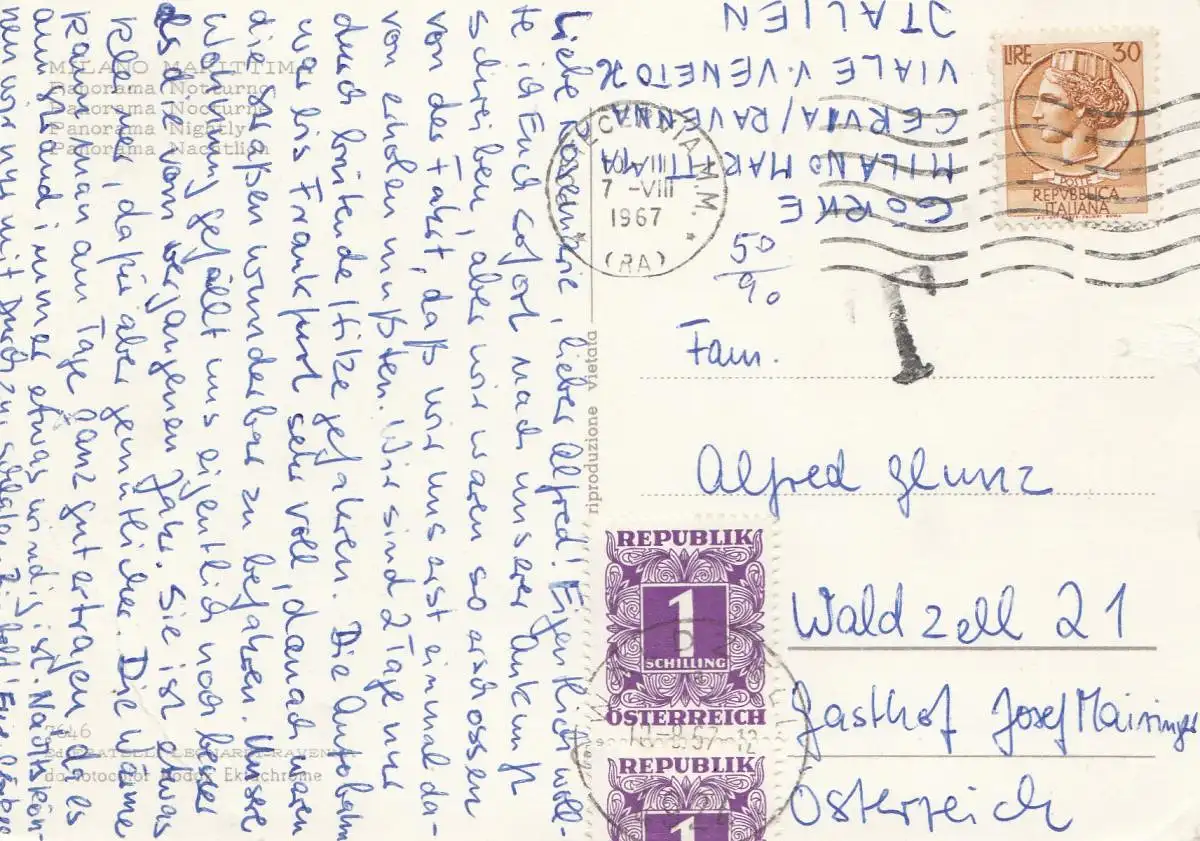 Liebe Rosemarie, lieber Alfred! Eigentlich woll-
te ich Euch sofort nach unserer Ankunft
schreiben, aber wir waren so erschossen
von der Fahrt, daß wir uns erst einmal da-
von erholen mußten. Wir sind 2 Tage nur
durch brütende Hitze gefahren. Die Autobahn
war bis Frankfurt sehr voll, danach waren
die Straßen wunderbar zu befahren. Unsere
Wohnung gefällt uns eigentlich noch besser
als die vom vergangenen Jahr. Sie ist etwas
kleiner, dafür aber gemütlicher. Die Wärme
kann man am Tage ganz gut ertragen, da es
am Strand immer etwas windig ist. Nachts kön-
nen wir nur mit Durchzug schlafen. Bis bald! Eure
MILANO MARITTIMA
Panorama Notturno
Panorama Nocturne
Panorama Nightly
Panorama Nächtlich
7646
Ed. FRATELLI LEONARDI-RAVENNA
da Fotocolor Kodak Ektachrome
riproduzione vietata
GORKE
MILANO MARITTIMA
CERVIA/RAVENNA
VIALE V. VENETO
ITALIEN
CERVIA M.M.
7 -VIII
1967
(RA)
LIRE 30
POSTE
REPVBBLICA
ITALIANA
50
90
T
Fam.
Alfred Glunz
Waldzell 21
Gasthof Josef Mairinger
Österreich
REPUBLIK
1
SCHILLING
ÖSTERREICH
REPUBLIK
1
WALDZELL
12.-8.67-12